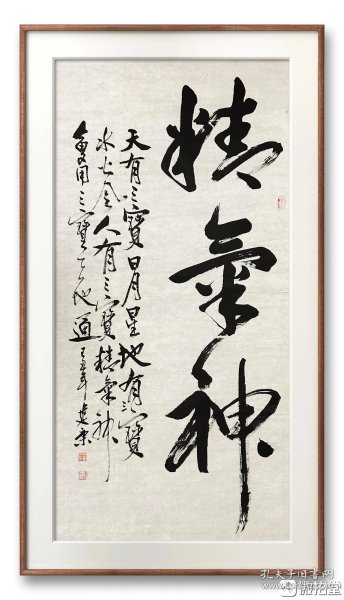 精氣神
天有三寶日月星地有三寶
水火風人有三寶精氣神
會用三寶天地通
孔夫子旧书网
微拍堂